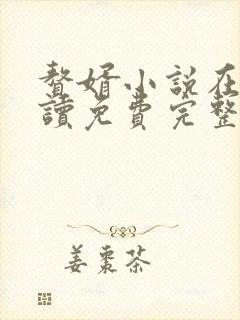 贅婿小說在
讀免費完整
姜棗茶